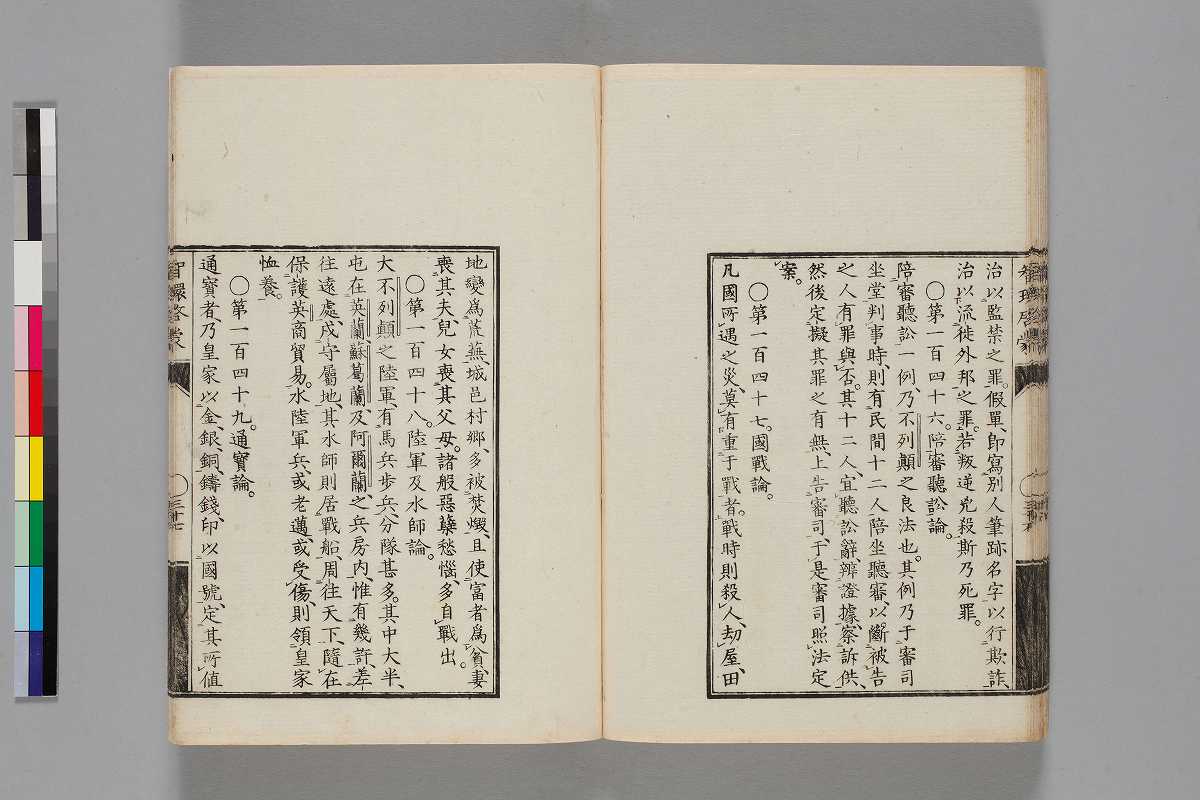 治以監禁之罪。假單、卽寫別人筆跡名字以行欺詐、
治以流徙外邦之罪。若叛逆兇殺斯乃死罪。
〇第一百四十六。陪審聽訟論。
陪審聽訟一例、乃不列顛之良法也。其例乃于審司
坐堂判事時、則有民間十二人陪坐聽審、以斷被告
之人有罪與否。其十二人、宜聽訟辭辨證據、察訴供、
然後定擬其罪之有無、上告審司、于是審司照法定
案。
〇第一百四十七。國戰論。
凡國所遇之災、莫有重于戰者。戰時則殺人、劫屋、田
地變爲荒蕪、城邑村鄉、多被焚燬、且使富者爲貧、妻
喪其夫、兒女喪其父母。諸般惡孽愁惱、多自戰出。
〇第一百四十八。陸軍及水師論。
大不列顛之陸軍、有馬兵步兵、分隊甚多。其中大半、
屯在英蘭、蘇葛蘭、及阿爾蘭、之兵房內、惟有幾許、差
往遠處、戍守屬地、其水師則居戰船、周往天下、隨在
保護英商貿易。水陸軍兵、或老邁、或受傷、則領皇家
恤養。
〇第一百四十九。通寶論。
通寶者、乃皇家以金、銀、銅、鑄錢、印以國號、定其所値
智環啓蒙
三十七